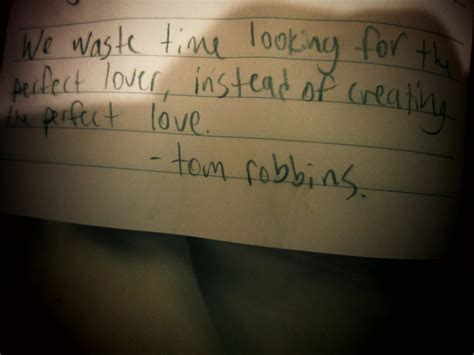 We waste time looking for the
perfect lover, instead of creating
the perfect love.
- tom robbins.